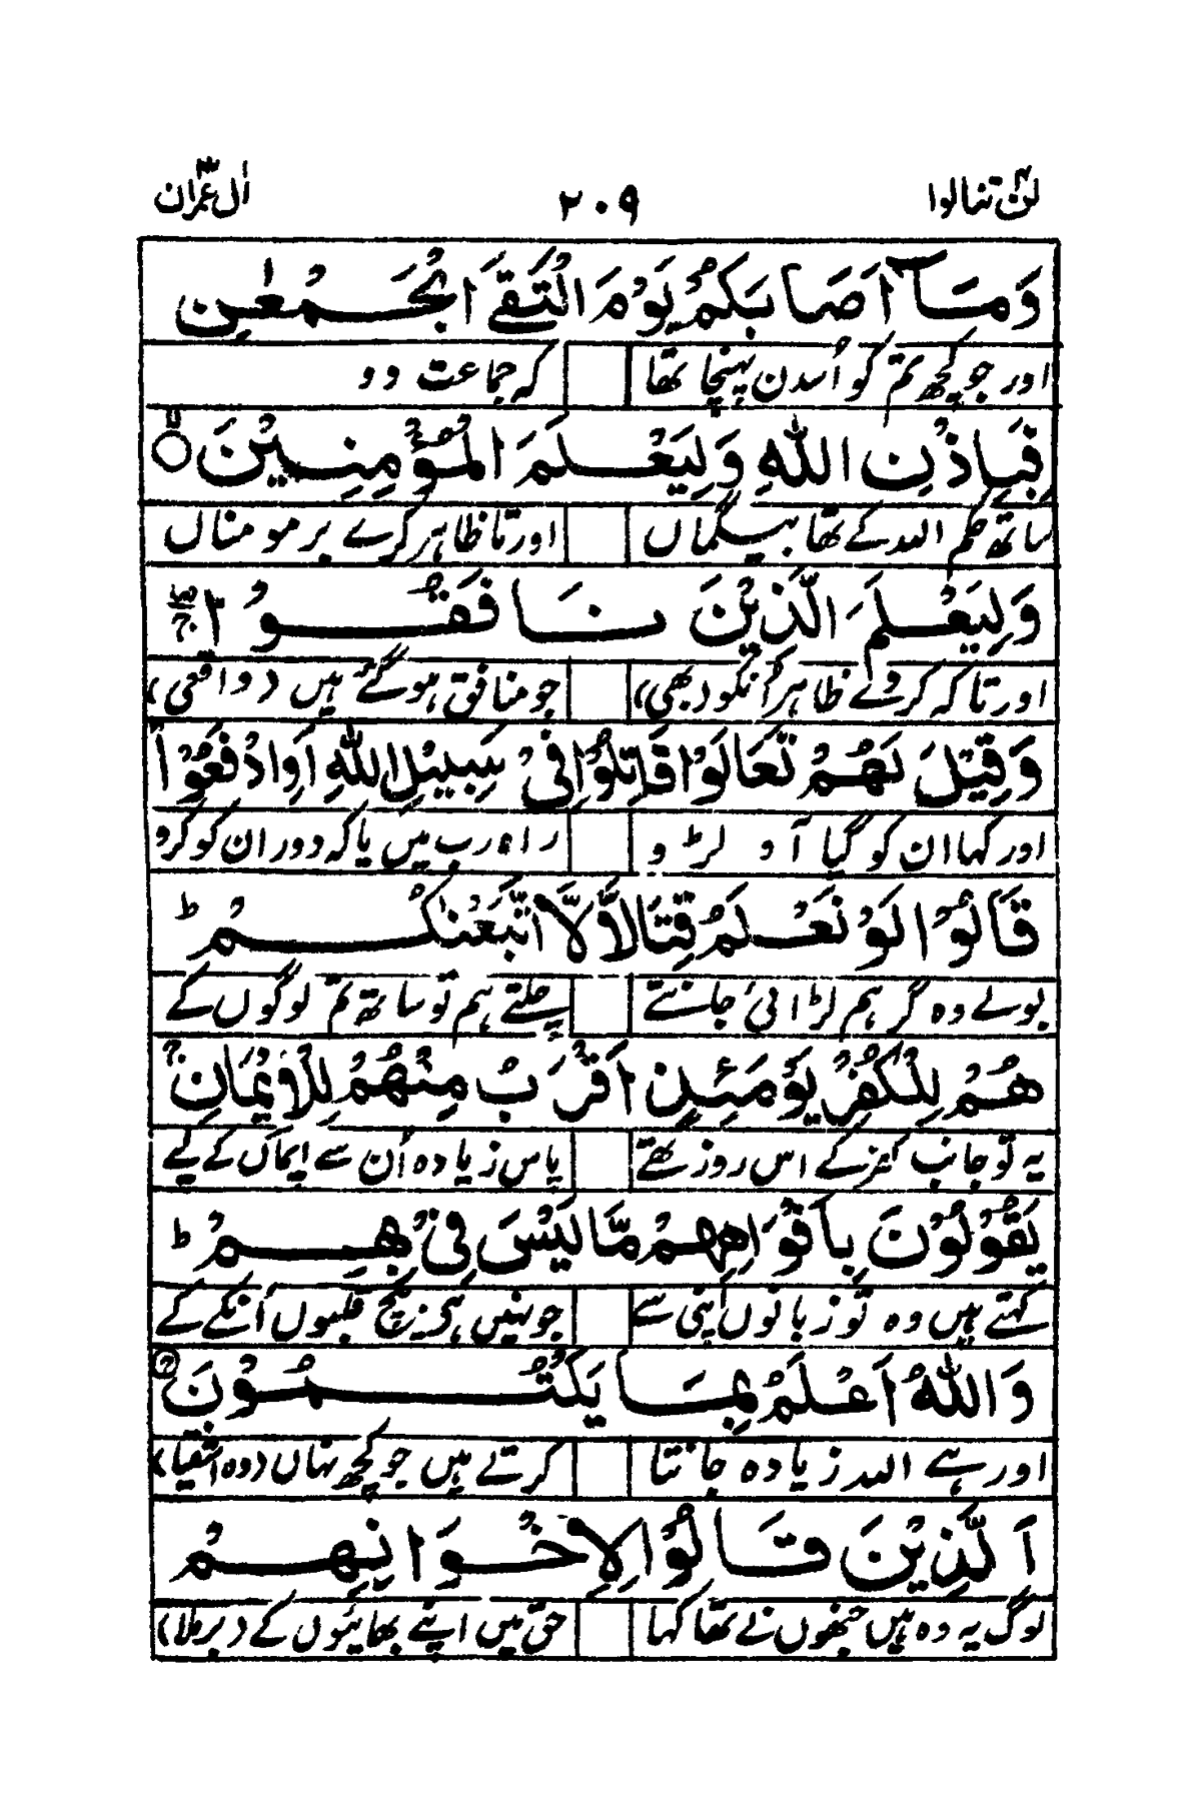 لن تنالوا ٤
٢٠٩
اٰل عمران ٣
وَمَآ اَصَابَكُمْ يَوْمَ الْتَقَى الْجَمْعٰنِ
اور جو کچھ تم کو اُسدن پہنچا تھا کہ جماعت دو
فَبِاِذْنِ اللّٰهِ وَلِيَعْلَمَ الْمُؤْمِنِيْنَ ۝
ساتھ حکم اللہ کے تھا بیگماں اور تا ظاہر کرے پر مومناں
وَلِيَعْلَمَ الَّذِيْنَ نَافَقُوْا
اور تاکہ کردے ظاہر اُنکو (بھی) جو منافق ہو گئے ہیں (واقعی)
وَقِيْلَ لَهُمْ تَعَالَوْا قَاتِلُوْا فِىْ سَبِيْلِ اللّٰهِ اَوِ ادْفَعُوْا
اور کہا ان کو گیا آؤ لڑو راہ رب میں یا کہ دور ان کو کرو
قَالُوْا لَوْ نَعْلَمُ قِتَالًا لَّا اتَّبَعْنٰكُمْ ط
بولے وہ گر ہم لڑائی جانتے چلتے ہم تو ساتھ تم لوگوں کے
هُمْ لِلْكُفْرِ يَوْمَئِذٍ اَقْرَبُ مِنْهُمْ لِلْاِيْمَانِ ج
یہ تو جانب کفر کے اس روز تھے پاس زیادہ اُن سے ایماں کے لیے
يَقُوْلُوْنَ بِاَفْوَاهِهِمْ مَّا لَيْسَ فِىْ بِهِمْ ط
کہتے ہیں وہ تو زبانوں اپنی سے جو نہیں ہے بیچ قلبوں اُنکے کے
وَاللّٰهُ اَعْلَمُ بِمَا يَكْتُمُوْنَ ج
اور ہے اللہ زیادہ جانتا کرتے ہیں جو کچھ نہاں (وہ اشقیا)
اَلَّذِيْنَ قَالُوْا لِاِخْوَانِهِمْ
لوگ یہ وہ ہیں جنھوں نے تھا کہا حق میں اپنے بھائیوں کے (برملا)